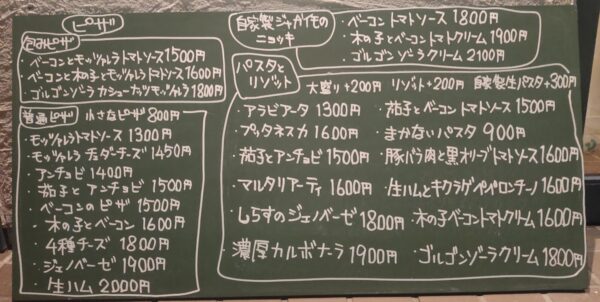 ピザ
包みピザ
・ベーコンとモッツァレラトマトソース1500円
・ベーコンと木の子とモッツァレラトマトソース1600円
・ゴルゴンゾーラカシューナッツモッツァレラ1800円
普通ピザ 小さなピザ 800円
・モッツァレラトマトソース 1300円
・モッツァレラ チェダーチーズ 1450円
・アンチョビ 1400円
・茄子とアンチョビ 1500円
・ベーコンのピザ 1500円
・木の子とベーコン 1600円
・4種チーズ 1800円
・ジェノベーゼ 1900円
・生ハム 2000円
自家製ジャガイモの
ニョッキ
・ベーコントマトソース 1800円
・木の子とベーコントマトクリーム 1900円
・ゴルゴンゾーラクリーム 2100円
パスタと
リゾット
大盛り+200円 リゾット+200円 自家製生パスタ+300円
・アラビアータ 1300円
・プッタネスカ 1600円
・茄子とアンチョビ 1500円
・マルタリアーティ 1600円
・しらすのジェノベーゼ 1800円
濃厚カルボナーラ 1900円
・茄子とベーコントマトソース 1500円
・まかないパスタ 900円
・豚バラ肉と黒オリーブトマトソース 1600円
・生ハムとキクラゲペペロンチーノ 1600円
・木の子ベーコントマトクリーム 1600円
・ゴルゴンゾーラクリーム 1800円